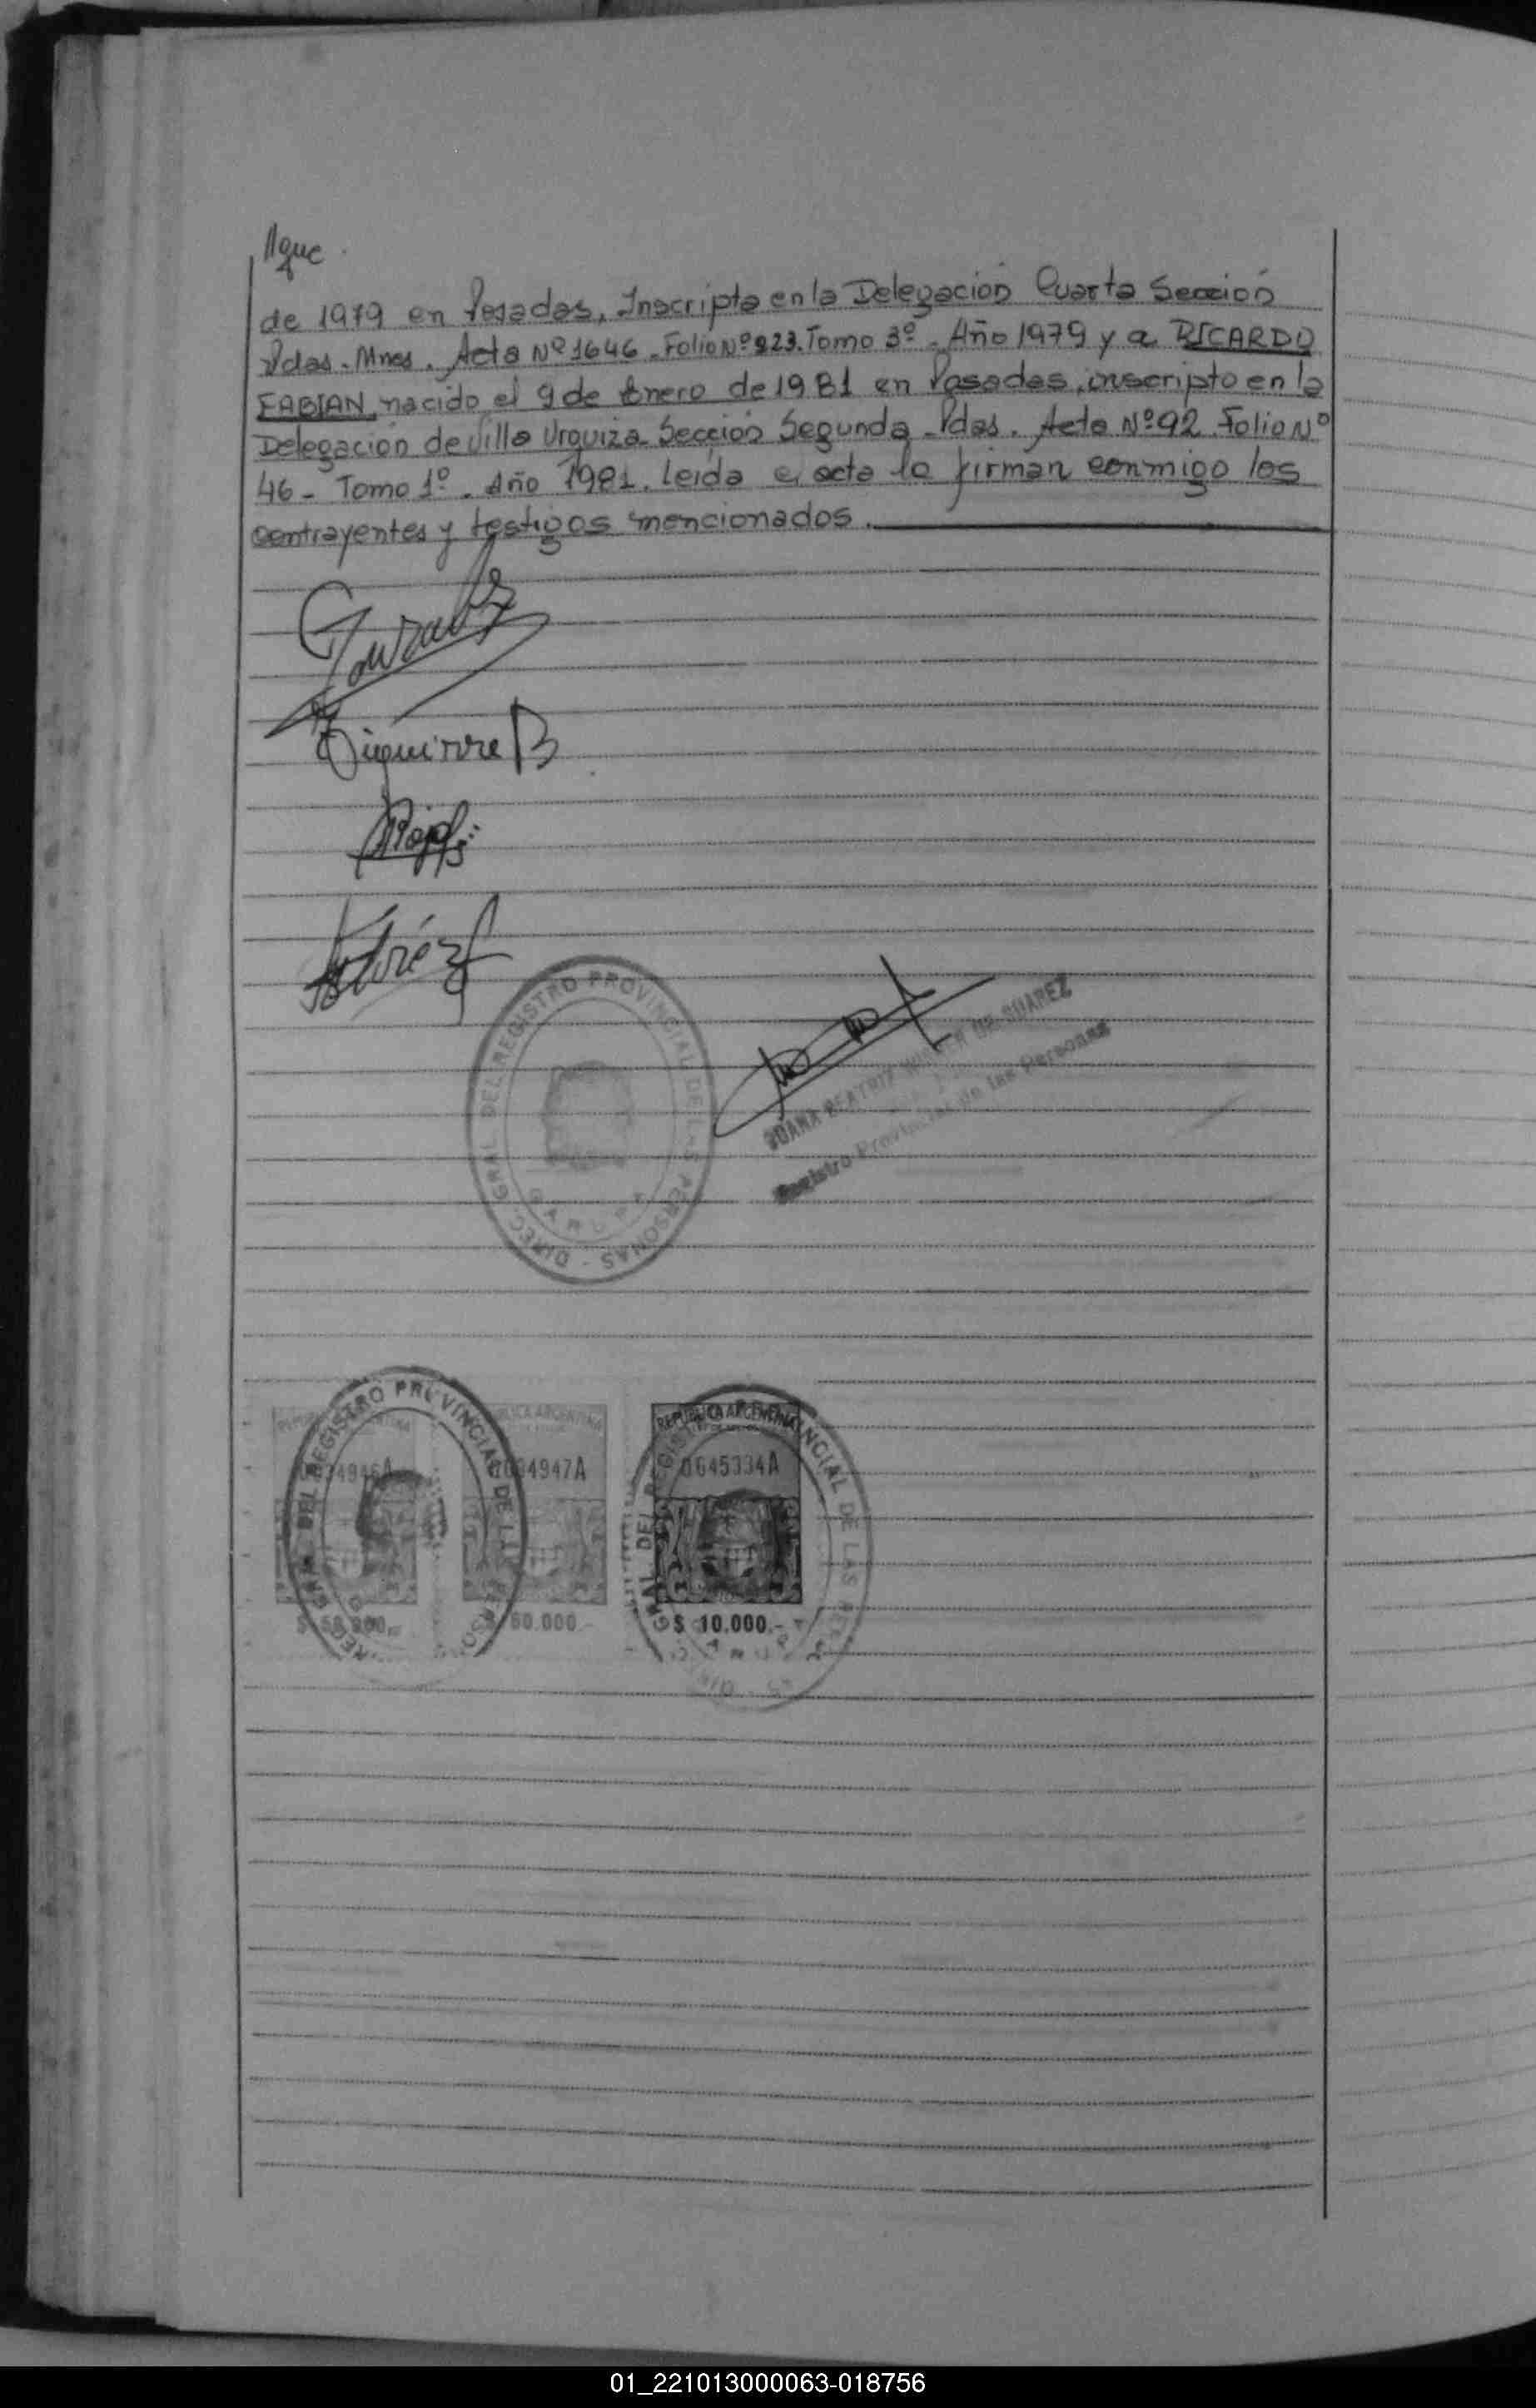 de 1979 en Posadas, Inscripta en la Delegación Cuarta Sección
Pdas. Mnes. Acta Nº 1646 - Folio Nº 823. Tomo 3º - Año 1979 y a RICARDO
FABIAN, nacido el 9 de Enero de 1981 en Posadas, inscripto en la
Delegación de Villa Urquiza - Sección Segunda - Pdas. Acta Nº 92 - Folio Nº
46 - Tomo 1º - Año 1981. Leída el acta la firman conmigo los
contrayentes y testigos mencionados.
DIREC. GRAL. DEL REGISTRO PROVINCIAL DE LAS PERSONAS -
GARUPA
JUANA BEATRIZ DE SUAREZ
Registro Provincial de las Personas
DEL REGISTRO PROVINCIAL DE
REPUBLICA ARGENTINA
4947A
60.000.-
REPUBLICA ARGENTINA
0645334A
$ 10.000.-
GRAL DEL REGIST NCIAL DE LAS PER
01_221013000063-018756